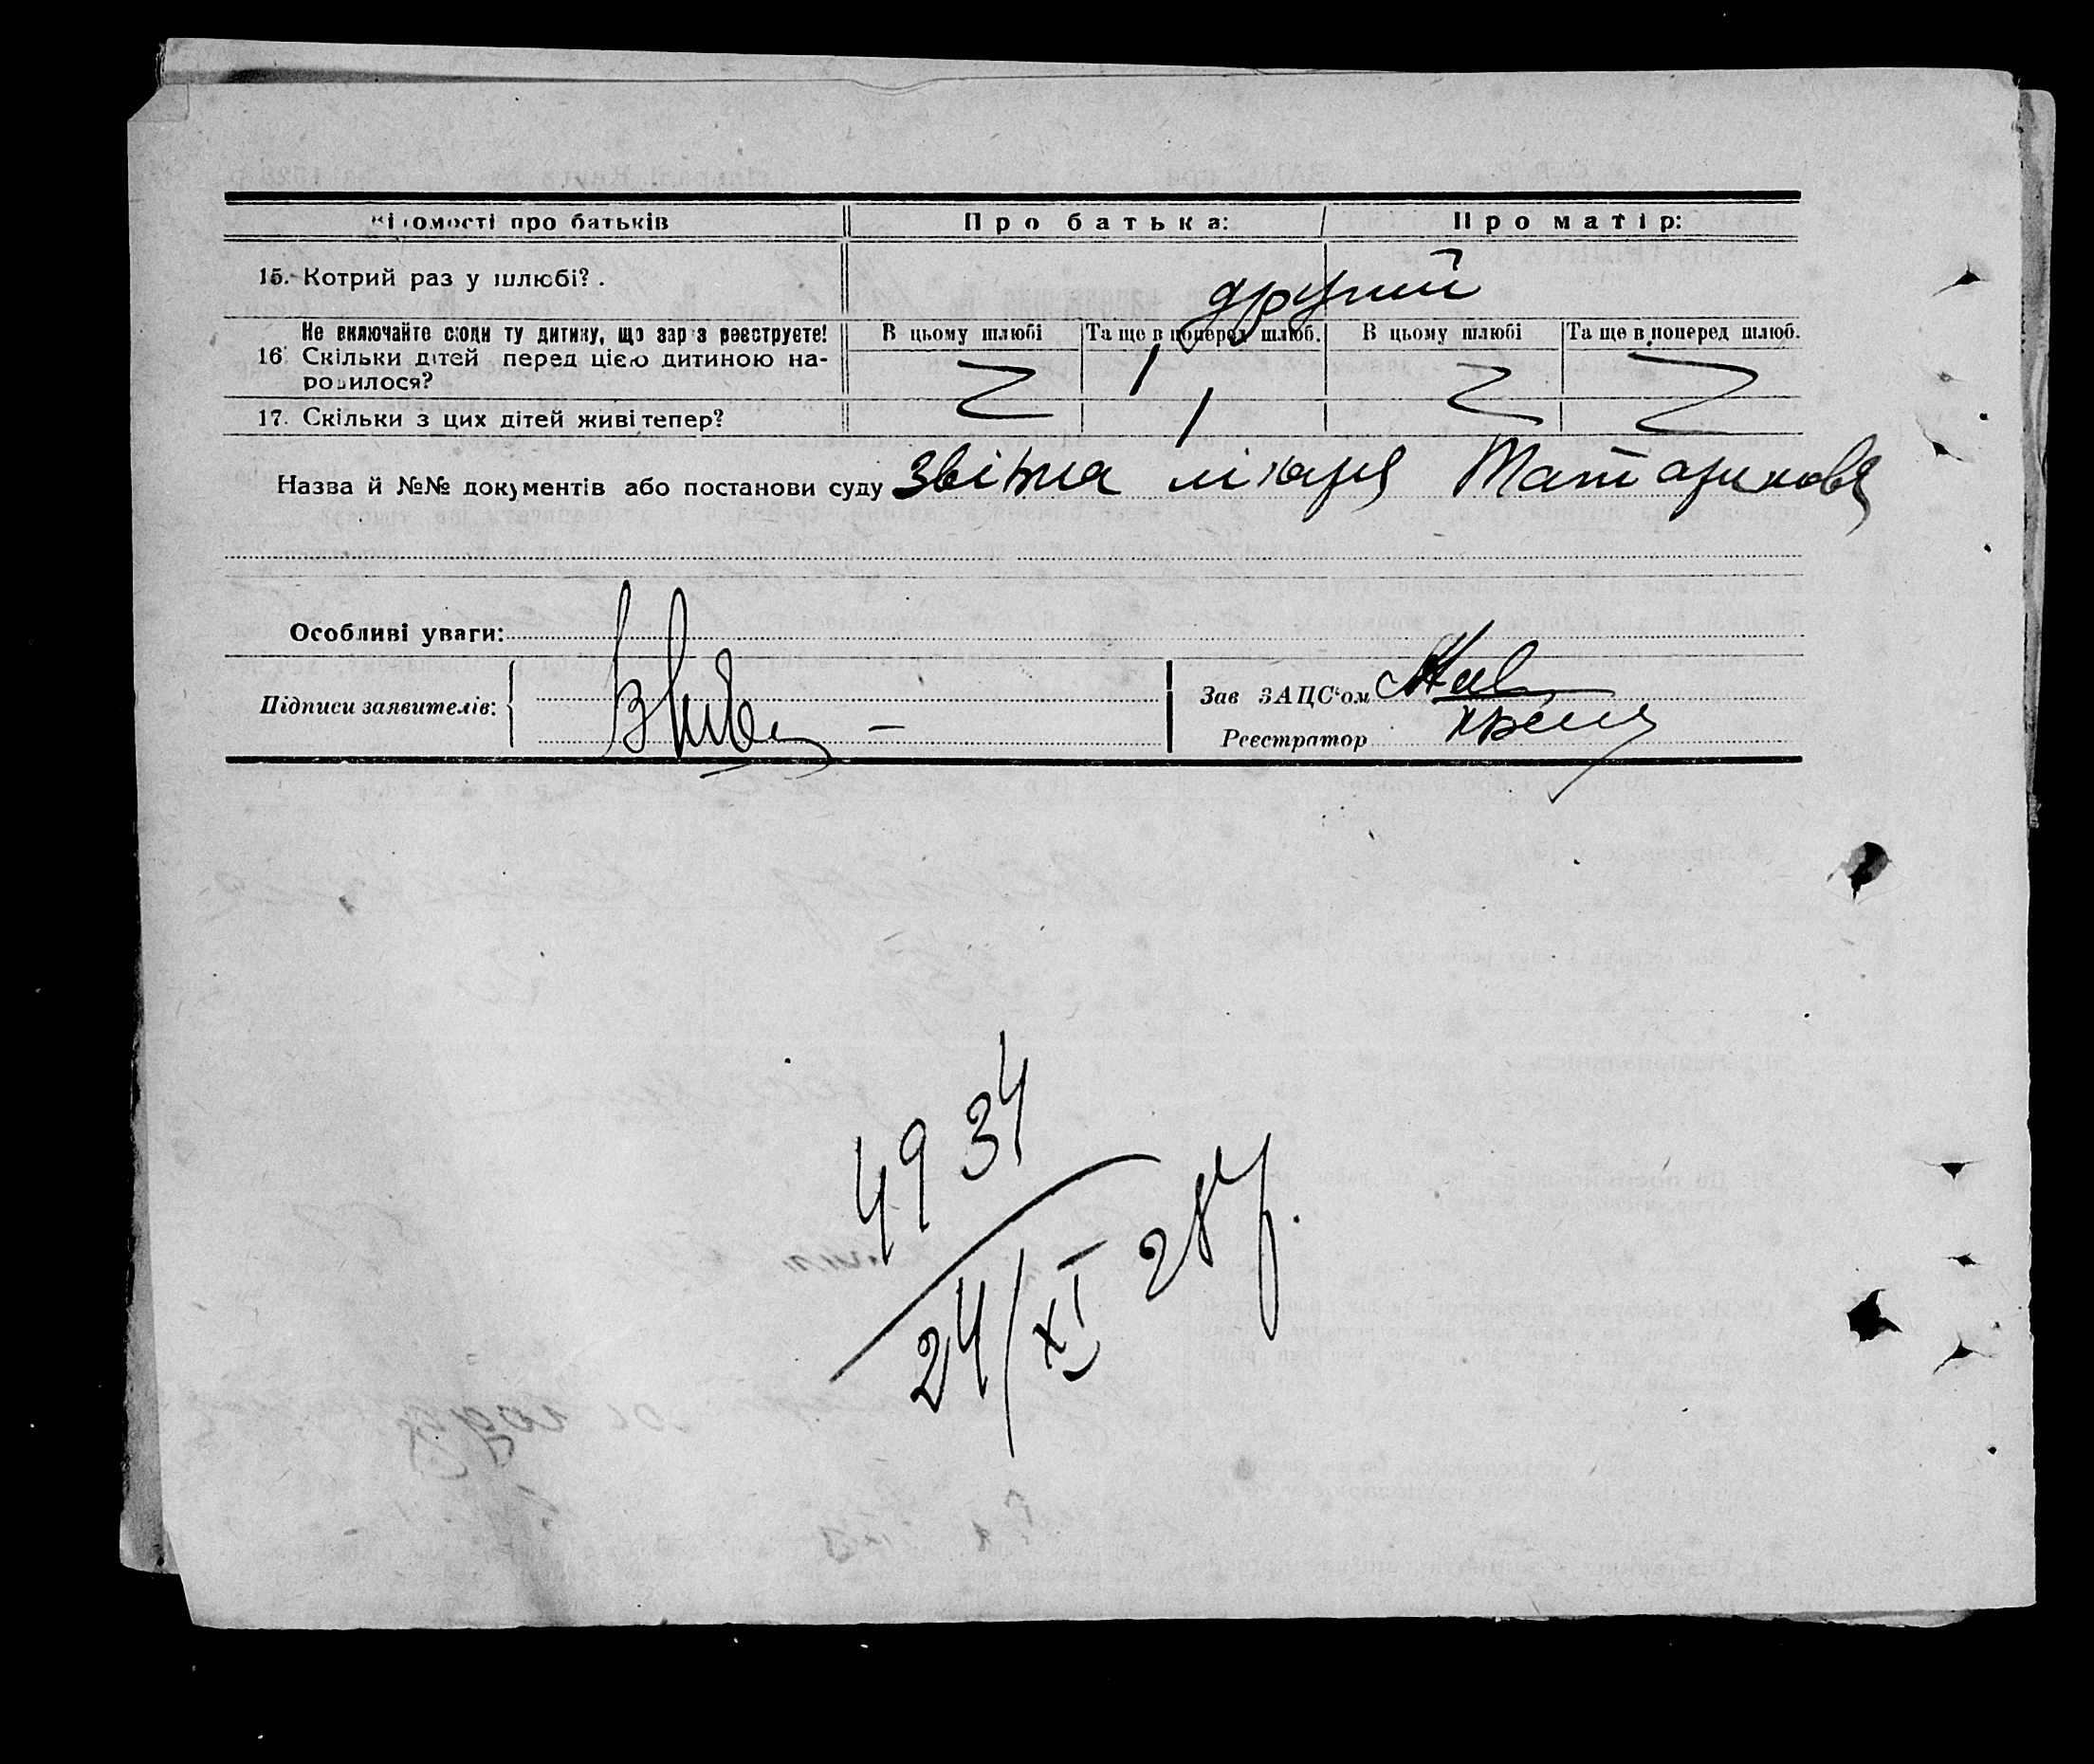 Відомості про батьків Про батька: Про матір:
15. Котрий раз у шлюбі? . другий
Не включайте сюди ту дитину, що зараз реєструєте! В цьому шлюбі Та ще в поперед шлюб. В цьому шлюбі Та ще в поперед шлюб.
16 Скільки дітей перед цією дитиною на-
родилося? 1
17. Скільки з цих дітей живі тепер? 1
Назва й №№ документів або постанови суду Звітка лікаря
Особливі уваги:
Підписи заявителів:
Зав ЗАЦС‘ом
Реєстратор
4934
24/XI 28 р.